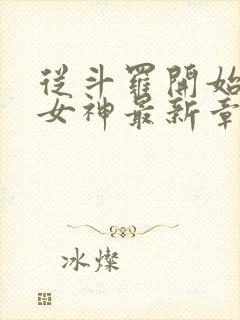 從斗羅開始
女神最新章
冰燦